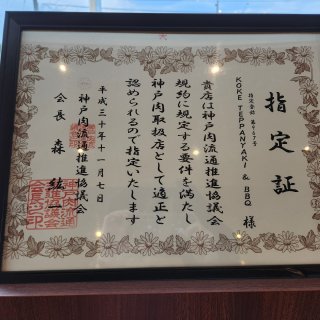 指定証
指定登録 第957号
KOKE TEPPANYAKI & BBQ 様
貴店は神戸肉流通推進協議会
規約に規定する要件を満たし
神戸肉取扱店として適正と
認められるので指定いたします
平成三十年十一月七日
神戸肉流通推進協議会
会長 森 紘一